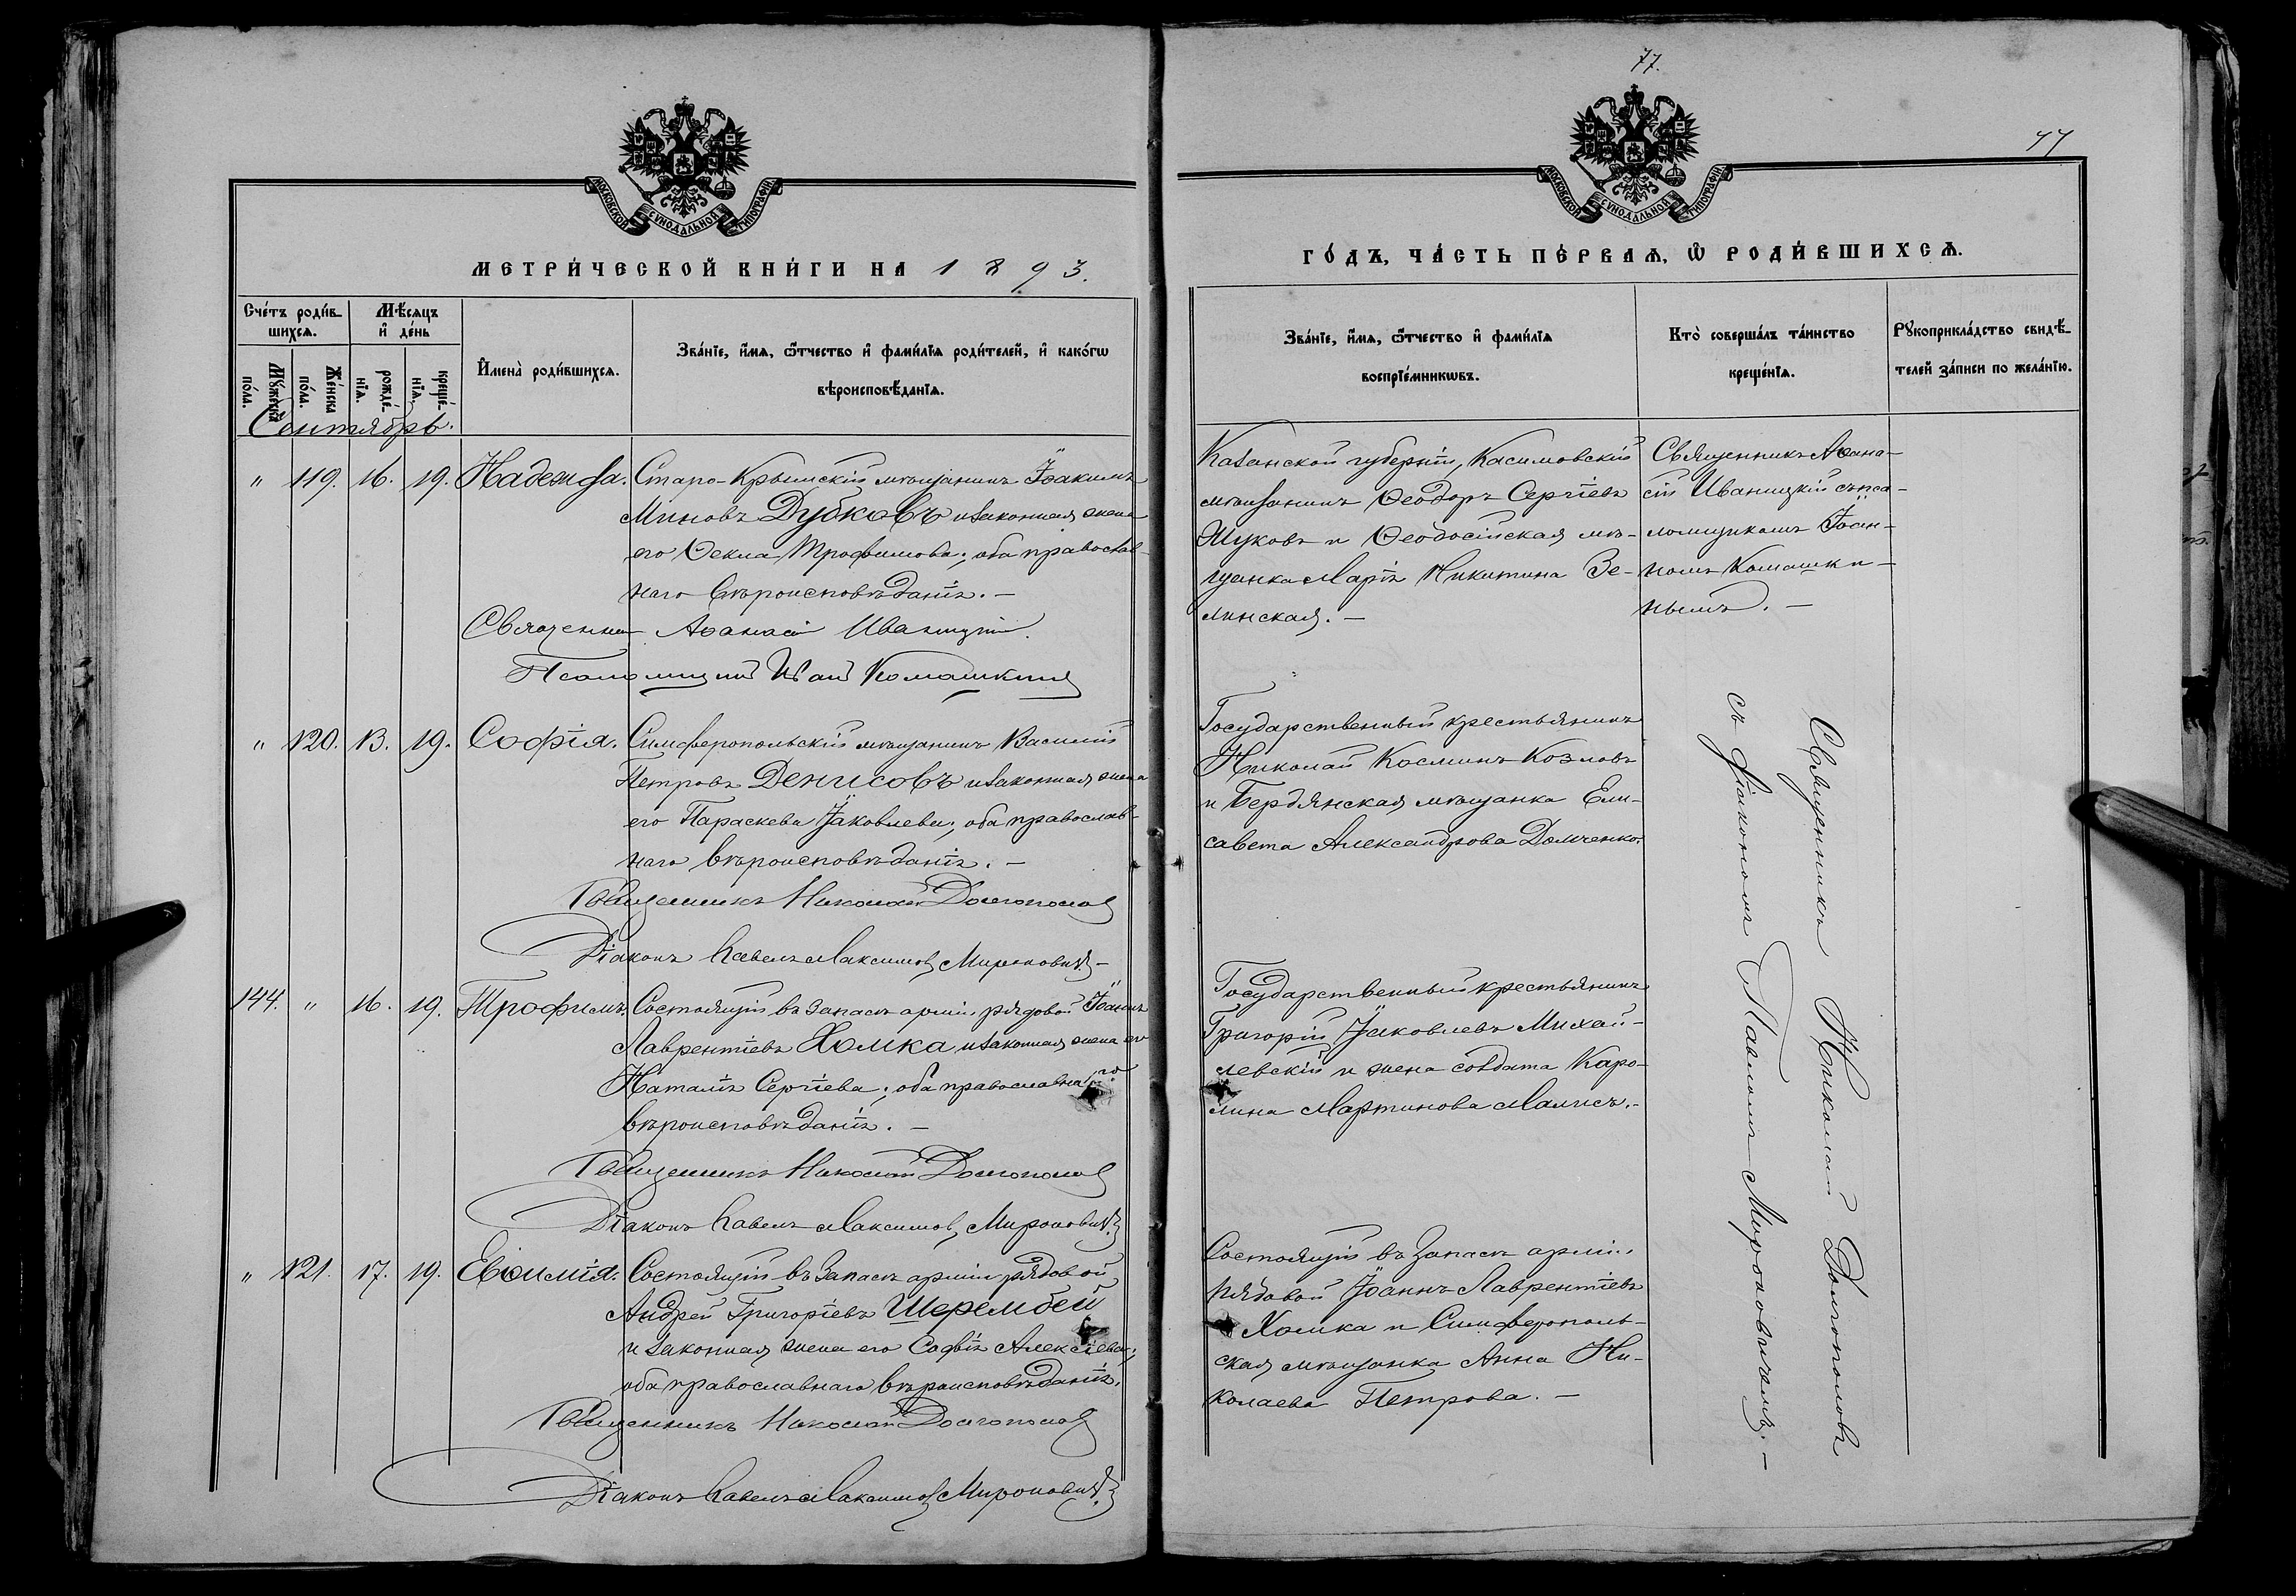 МОСКОВСКОЙ СУНОДАЛЬНОЙ ТИПОГРАФІИ
МЕТРИ́ЧЕСКОЙ КНИ́ГИ НА 1893.
Сче́тъ роди́в-
шихсѧ.
Мѣ́сяцъ
и҆ де́нь
Мꙋ́жеска
по́ла.
Же́нска
по́ла.
рожде́-
нїѧ.
креще́-
нїѧ.
И҆мена̀ роди́вшихсѧ.
Зва́нїе, и҆́мѧ, ѻ҆́тчество и҆ фами́лїѧ роди́телей, и҆ како́гѡ
вѣроисповѣ́данїѧ.
Сентябрь.
" 119. 16. 19. Надежда. Старо-Крымскій мѣщанинъ Іоакимъ
Миновъ Дубковъ и законная жена
его Ѳекла Трофимова; оба православ-
наго вѣроисповѣданія. —
Священник Аѳанасій Иваницкій.
Псаломщикъ Иван Комашкинъ
" 120. 13. 19. Софія. Симферопольскій мѣщанинъ Василій
Петровъ Денисовъ и законная жена
его Параскева Іаковлева; оба православ-
наго вѣроисповѣданія. —
Священникъ Николай Долгополов
Діаконъ Павелъ Максимов Миронович. —
144. " 16. 19. Трофимъ. Состоящій въ запасѣ арміи рядовой Іоаннъ
Лаврентіевъ Хомка и законная жена его
Наталія Сергіева; оба православнаго
вѣроисповѣданія. —
Священникъ Николай Долгополов
Діаконъ Павелъ Максимов Миронович.
" 121. 17. 19. Евѳимія. Состоящій въ запасѣ арміи рядовой
Андрей Григоріевъ Шерембей
и законная жена его Софія Алексіева;
оба православнаго вѣроисповѣданія.
Священникъ Николай Долгополов
Діаконъ Павелъ Максимов Миронович.
77.
77
МОСКОВСКОЙ СУНОДАЛЬНОЙ ТИПОГРАФІИ
ГО́ДЪ, ЧА́СТЬ ПЕ́РВАѦ, Ѡ҆ РОДИ́ВШИХСѦ.
Зва́нїе, и҆́мѧ, ѻ҆́тчество и҆ фами́лїѧ
воспрїе́мникѡвъ.
Кто̀ соверша́лъ та́инство
креще́нїѧ.
Рꙋкоприкла́дство свидѣ́-
телей за́писи по жела́нїю.
Казанской губерніи, Касимовскій
мѣщанинъ Ѳеодоръ Сергіевъ
Жуковъ и Ѳеодосійская мѣ-
щанка Марія Никитина Зе-
линская. —
Священникъ Аѳана-
сій Иваницкій съ пса-
ломщикомъ Іоан-
номъ Комашки-
нымъ. —
Государственный крестьянинъ
Николай Косминъ Козловъ
и Бердянская мѣщанка Ели-
савета Александрова Домченко.
Государственный крестьянинъ
Григорій Іаковлевъ Михай-
левскій и жена солдата Каро-
лина Мартинова Малисъ. —
Состоящій въ запасѣ арміи
рядовой Іоаннъ Лаврентіевъ
Хомка и Симферополь-
ская мѣщанка Анна Ни-
колаева Петрова. —
Священникъ Николай Долгополовъ
съ діакономъ Павломъ Мироновичемъ. —